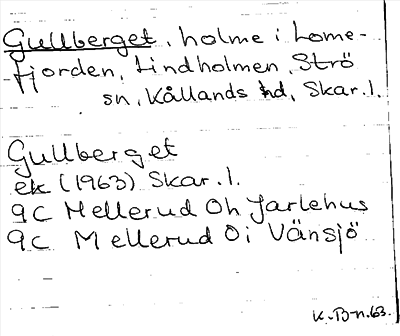 Gullberget, holme i Lome-
fjorden, Lindholmen, Strö
sn, Kållands hd, Skar.l.
Gullberget
ek (1963) Skar.l.
9C Mellerud Oh Jarlehus
9C Mellerud Oi Vänsjö
K.B-n.63.